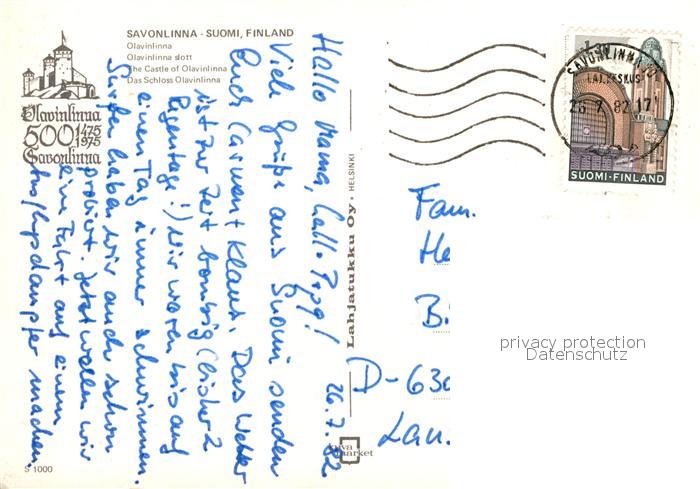 SAVONLINNA - SUOMI, FINLAND
Olavinlinna
Olavinlinna slott
The Castle of Olavinlinna
Das Schloss Olavinlinna
Olavinlinna
500 1475 1975
Savonlinna
Hallo Mama, Hallo Papa!
26.7.82
Viele Grüße aus Suomi senden
Euch Carmen + Klaus. Das Wetter
ist zur Zeit bombig (bisher 2
Regentage!) Wir waren bis auf
einen Tag immer schwimmen.
Surfen haben wir auch schon
probiert. Jetzt wollen wir
eine Fahrt auf einem
Ausflugsdampfer machen.
Lahjatukku Oy. HELSINKI
kuva market
S 1000
SAVONLINNA
LAJ.KESKUS
26.7.82 17
SUOMI-FINLAND
Fam.
He
B.
D-630
Lau.
privacy protection
Datenschutz